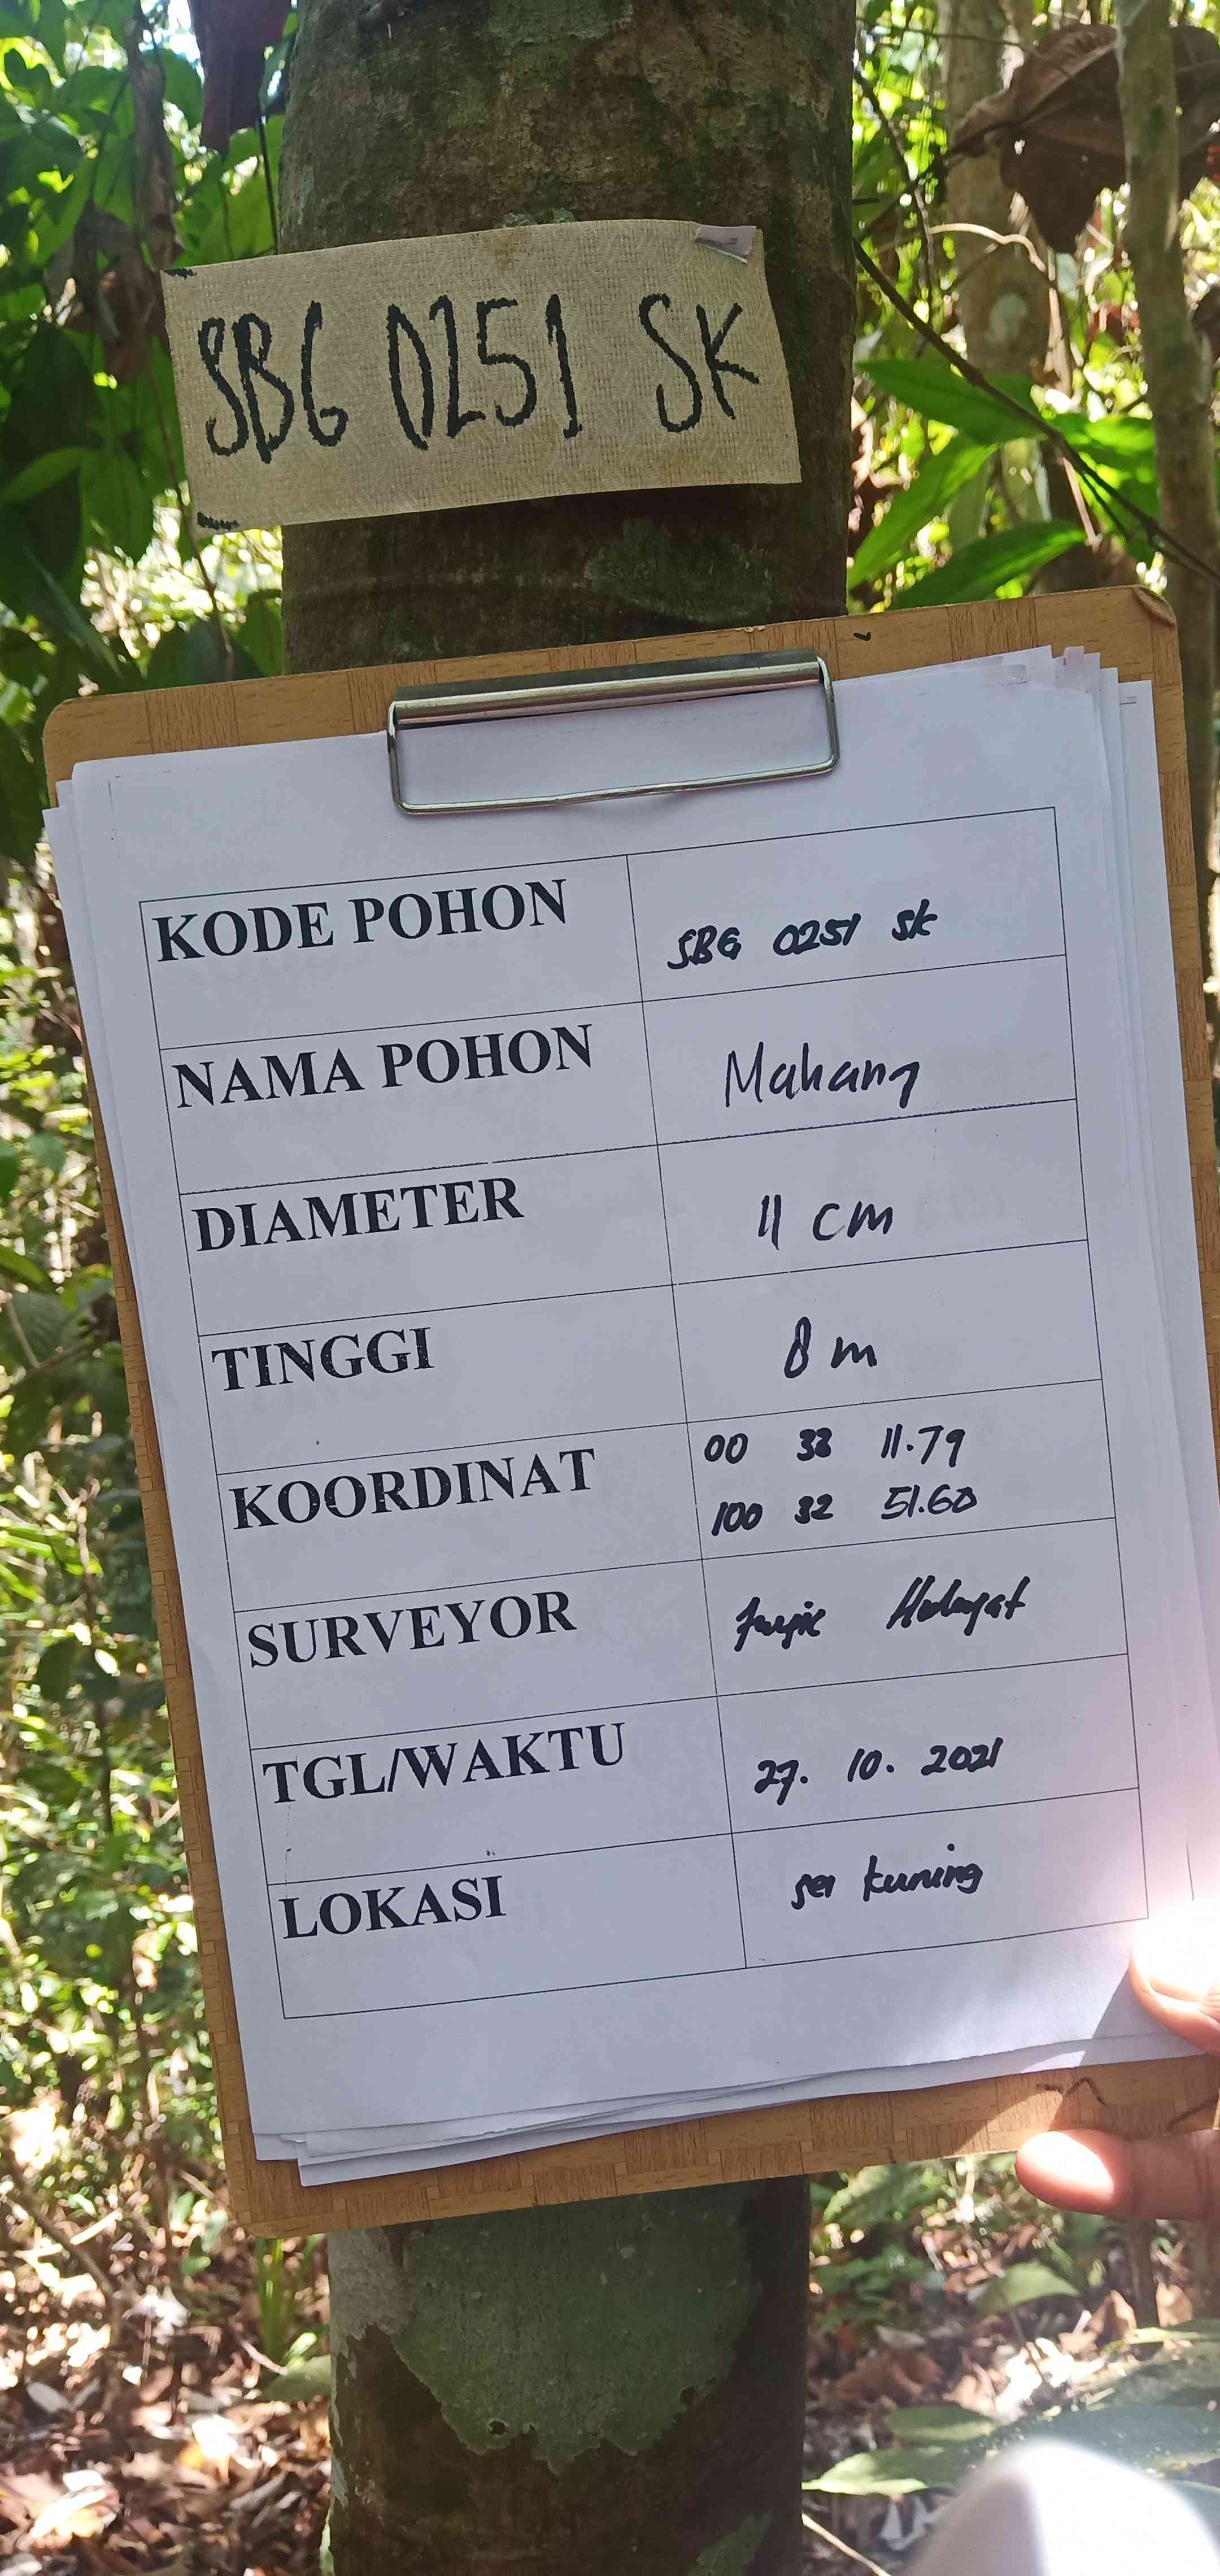 SBG 0251 SK
KODE POHON SBG 0251 SK
NAMA POHON Mahang
DIAMETER 11 cm
TINGGI 8 m
KOORDINAT 00 11.79
100 32 51.60
SURVEYOR
TGL/WAKTU 27. 10. 2021
LOKASI sei kuning